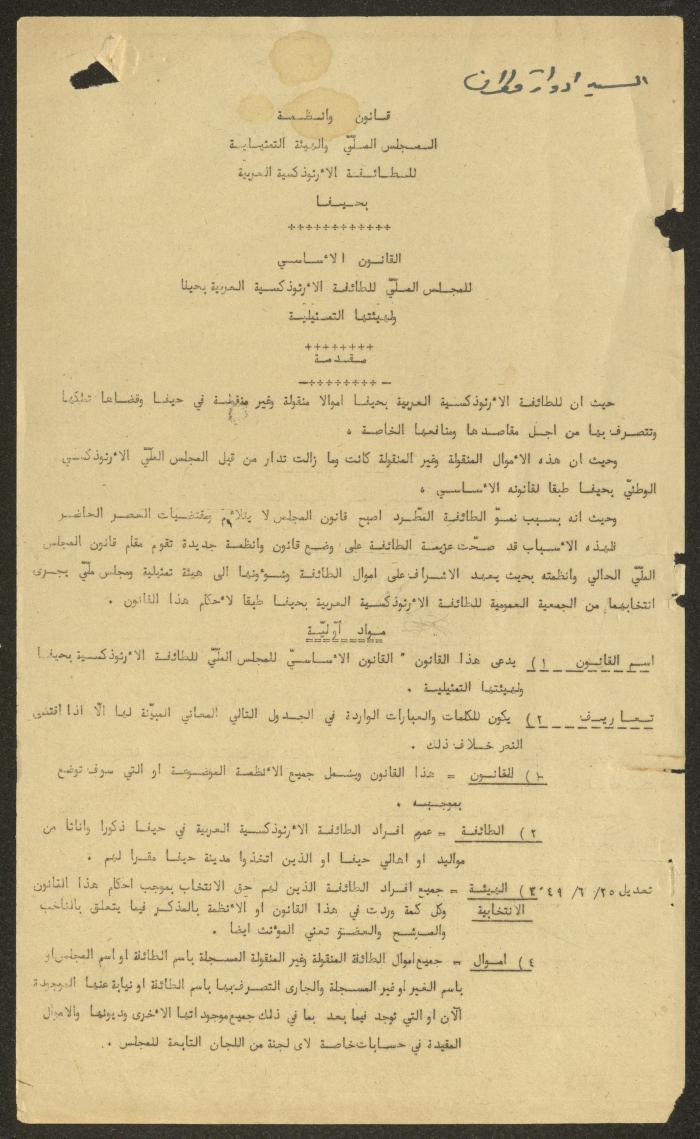 السيد ادوار
قانون وانظمة
المجلس الملّي والهيئة التمثيلية
للطائفة الارثوذكسية العربية
بحيفا
++++++++++++
القانون الاساسي
للمجلس الملّي للطائفة الارثوذكسية العربية بحيفا
ولهيئتها التمثيلية
++++++++
مقدمة
—++++++++—
حيث ان للطائفة الارثوذكسية العربية بحيفا اموالا منقولة وغير منقولة في حيفا وقضاها تملكها
وتتصرف بها من اجل مقاصدها ومنافعها الخاصة ٠
وحيث ان هذه الاموال المنقولة وغير المنقولة كانت وما زالت تدار من قبل المجلس الملّي الارثوذكسي
الوطنيّ بحيفا طبقا لقانونه الاساسي ٠
وحيث انه بسبب نموّ الطائفة المطّرد اصبح قانون المجلس لا يتلائم ومقتضيات العصر الحاضر
فلهذه الاسباب قد صحّت عزيمة الطائفة على وضع قانون وانظمة جديدة تقوم مقام قانون المجلس
الملّي الحالي وانظمته بحيث يعهد الاشراف على اموال الطائفة وشوءونها الى هيئة تمثيلية ومجلس ملّي يجرى
انتخابهما من الجمعية العمومية للطائفة الارثوذكسية العربية بحيفا طبقا لاحكام هذا القانون .
مواد اوّليّة
اسم القانون ١) يدعى هذا القانون " القانون الاساسيّ للمجلس الملّيّ للطائفة الارثوذكسية بحيفا
ولهيئتها التمثيلية .
تعاريف ٢) يكون للكلمات والعبارات الواردة في الجدول التالي المعاني المبيّنة لها الّا اذا اقتضى
النص خلاف ذلك .
١) القانون = هذا القانون ويشمل جميع الانظمة الموضوعة او التي سوف توضع
بموجبه .
٢) الطائفة = عموم افراد الطائفة الارثوذكسية العربية في حيفا ذكورا واناثا من
مواليد او اهالي حيفا او الذين اتخذوا مدينة حيفا مقرا لهم .
تعديل ٢٥/ ٦/ ٤٩ ٣) الهيئة = جميع افراد الطائفة الذين لهم حق الانتخاب بموجب احكام هذا القانون
الانتخابية وكل كمة وردت في هذا القانون او الانظمة بالمذكر فيما يتعلق بالناخب
والمرشح والعضو تعني الموءنث ايضا .
٤) اموال = جميع اموال الطائفة المنقولة وغير المنقولة المسجلة باسم الطائفة او اسم المجلس او
باسم الغير او غير المسجلة والجارى التصرف بها باسم الطائفة او نيابة عنها الموجودة
الآن او التي توجد فيما بعد بما في ذلك جميع موجوداتها الاخرى وديونها والاموال
المقيدة في حسابات خاصة لاى لجنة من اللجان التابعة للمجلس .